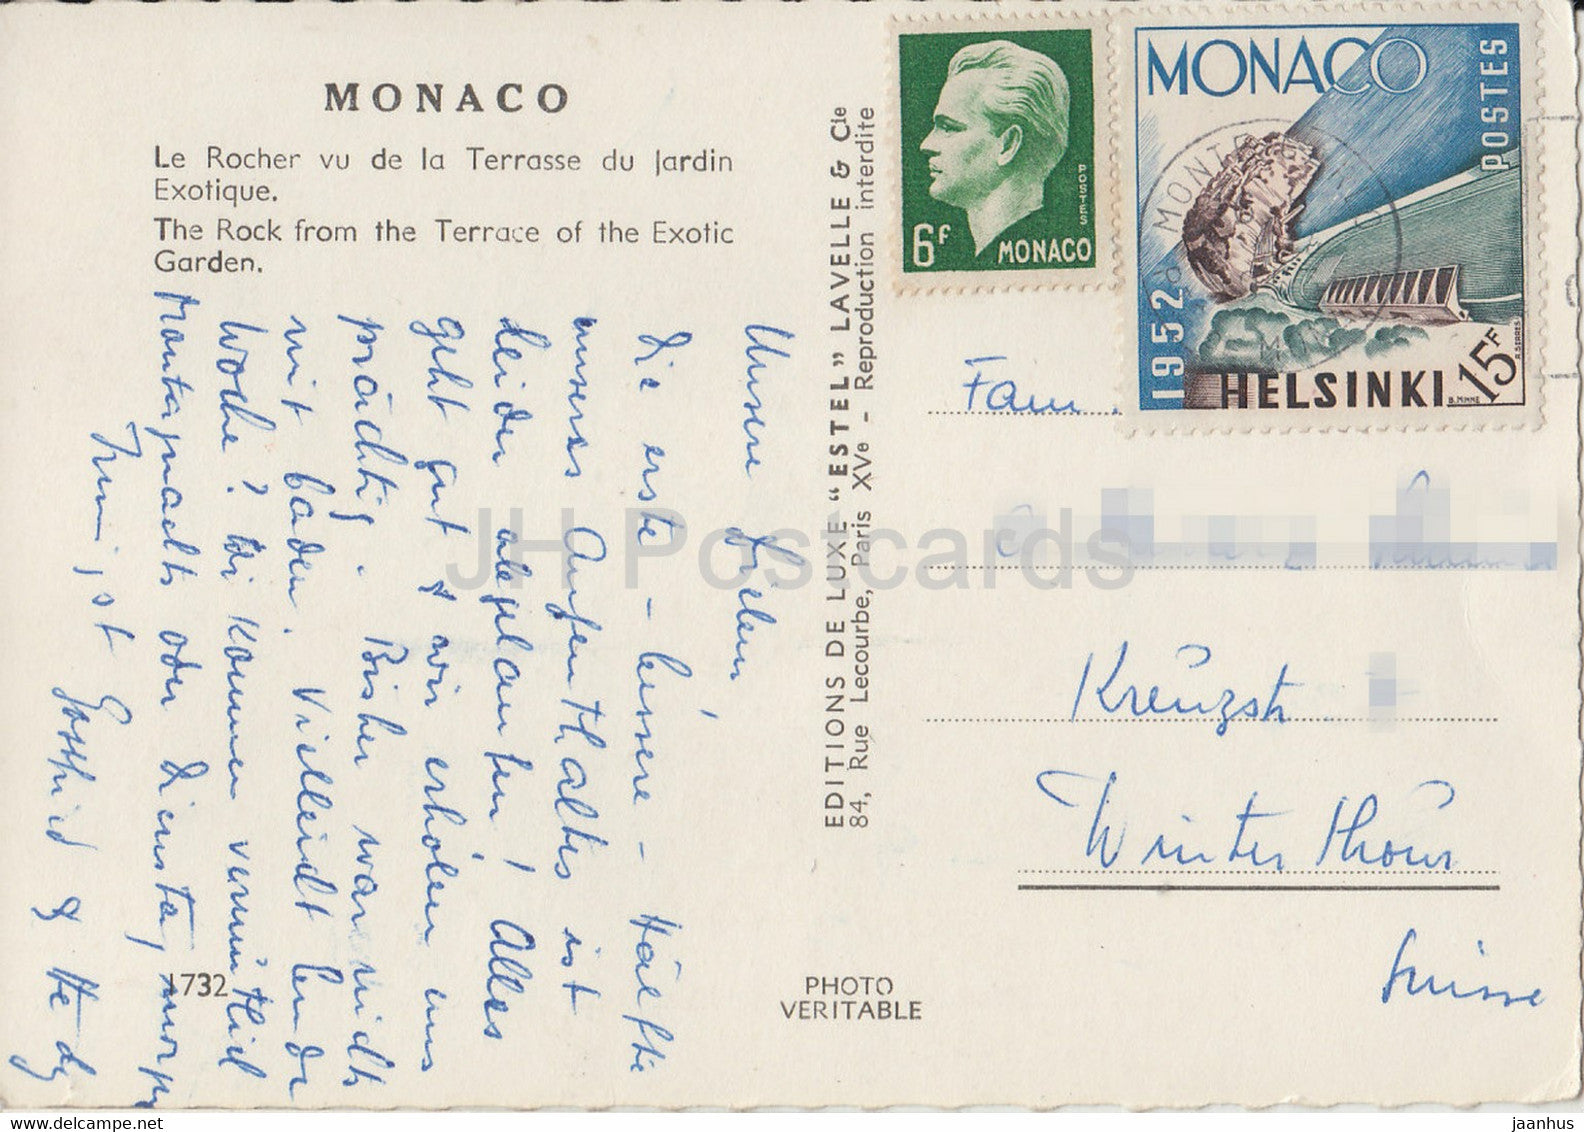 MONACO
Le Rocher vu de la Terrasse du Jardin
Exotique.
The Rock from the Terrace of the Exotic
Garden.
Unsere Lieben!
Die erste - bessere - Hälfte
unseres Aufenthaltes ist
leider abgelaufen! Alles
geht gut & wir erholen uns
prächtig. Bisher waren nicht
mit baden. Vielleicht Ende
Woche? Wir kommen vermutlich
Montagnacht oder Dienstag
&
1732
EDITIONS DE LUXE "ESTEL" LAVELLE & Cie
84, Rue Lecourbe, Paris XVe - Reproduction interdite
PHOTO
VERITABLE
6F
POSTES
MONACO
MONACO
POSTES
1952
HELSINKI
15F
B. MINNE
R. SERRES
Fam.
Kreuzstr
Winterthour
Suisse
JH Postcards
jaanhus - www.hippostcard.com